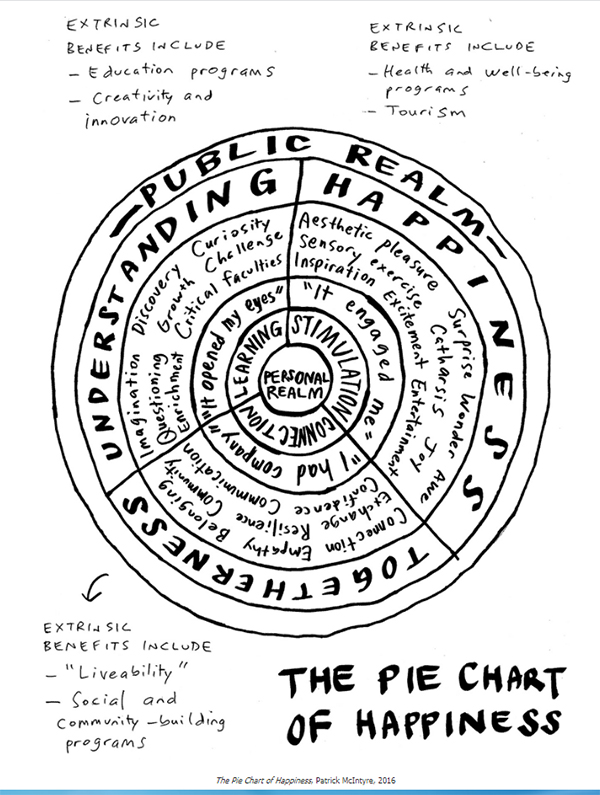 EXTRINSIC
BENEFITS INCLUDE
- Education programs
- Creativity and
innovation
EXTRINSIC
BENEFITS INCLUDE
- Health and well-being
programs
- Tourism
- PUBLIC REALM -
UNDERSTANDING
Imagination Discovery Curiosity
Questioning Growth Challenge
Enrichment Critical faculties
"It opened my eyes"
LEARNING
HAPPINESS
Aesthetic pleasure Surprise Wonder Awe
Sensory exercise Catharsis Joy
Inspiration Excitement Entertainment
"It engaged me"
STIMULATION
PERSONAL
REALM
CONNECTION
"I had company"
Confidence Communication Community
Exchange Resilience Belonging
Connection Empathy
TOGETHERNESS
EXTRINSIC
BENEFITS INCLUDE
- "Liveability"
- Social and
community-building
programs
THE PIE CHART
OF HAPPINESS
The Pie Chart of Happiness, Patrick McIntyre, 2016